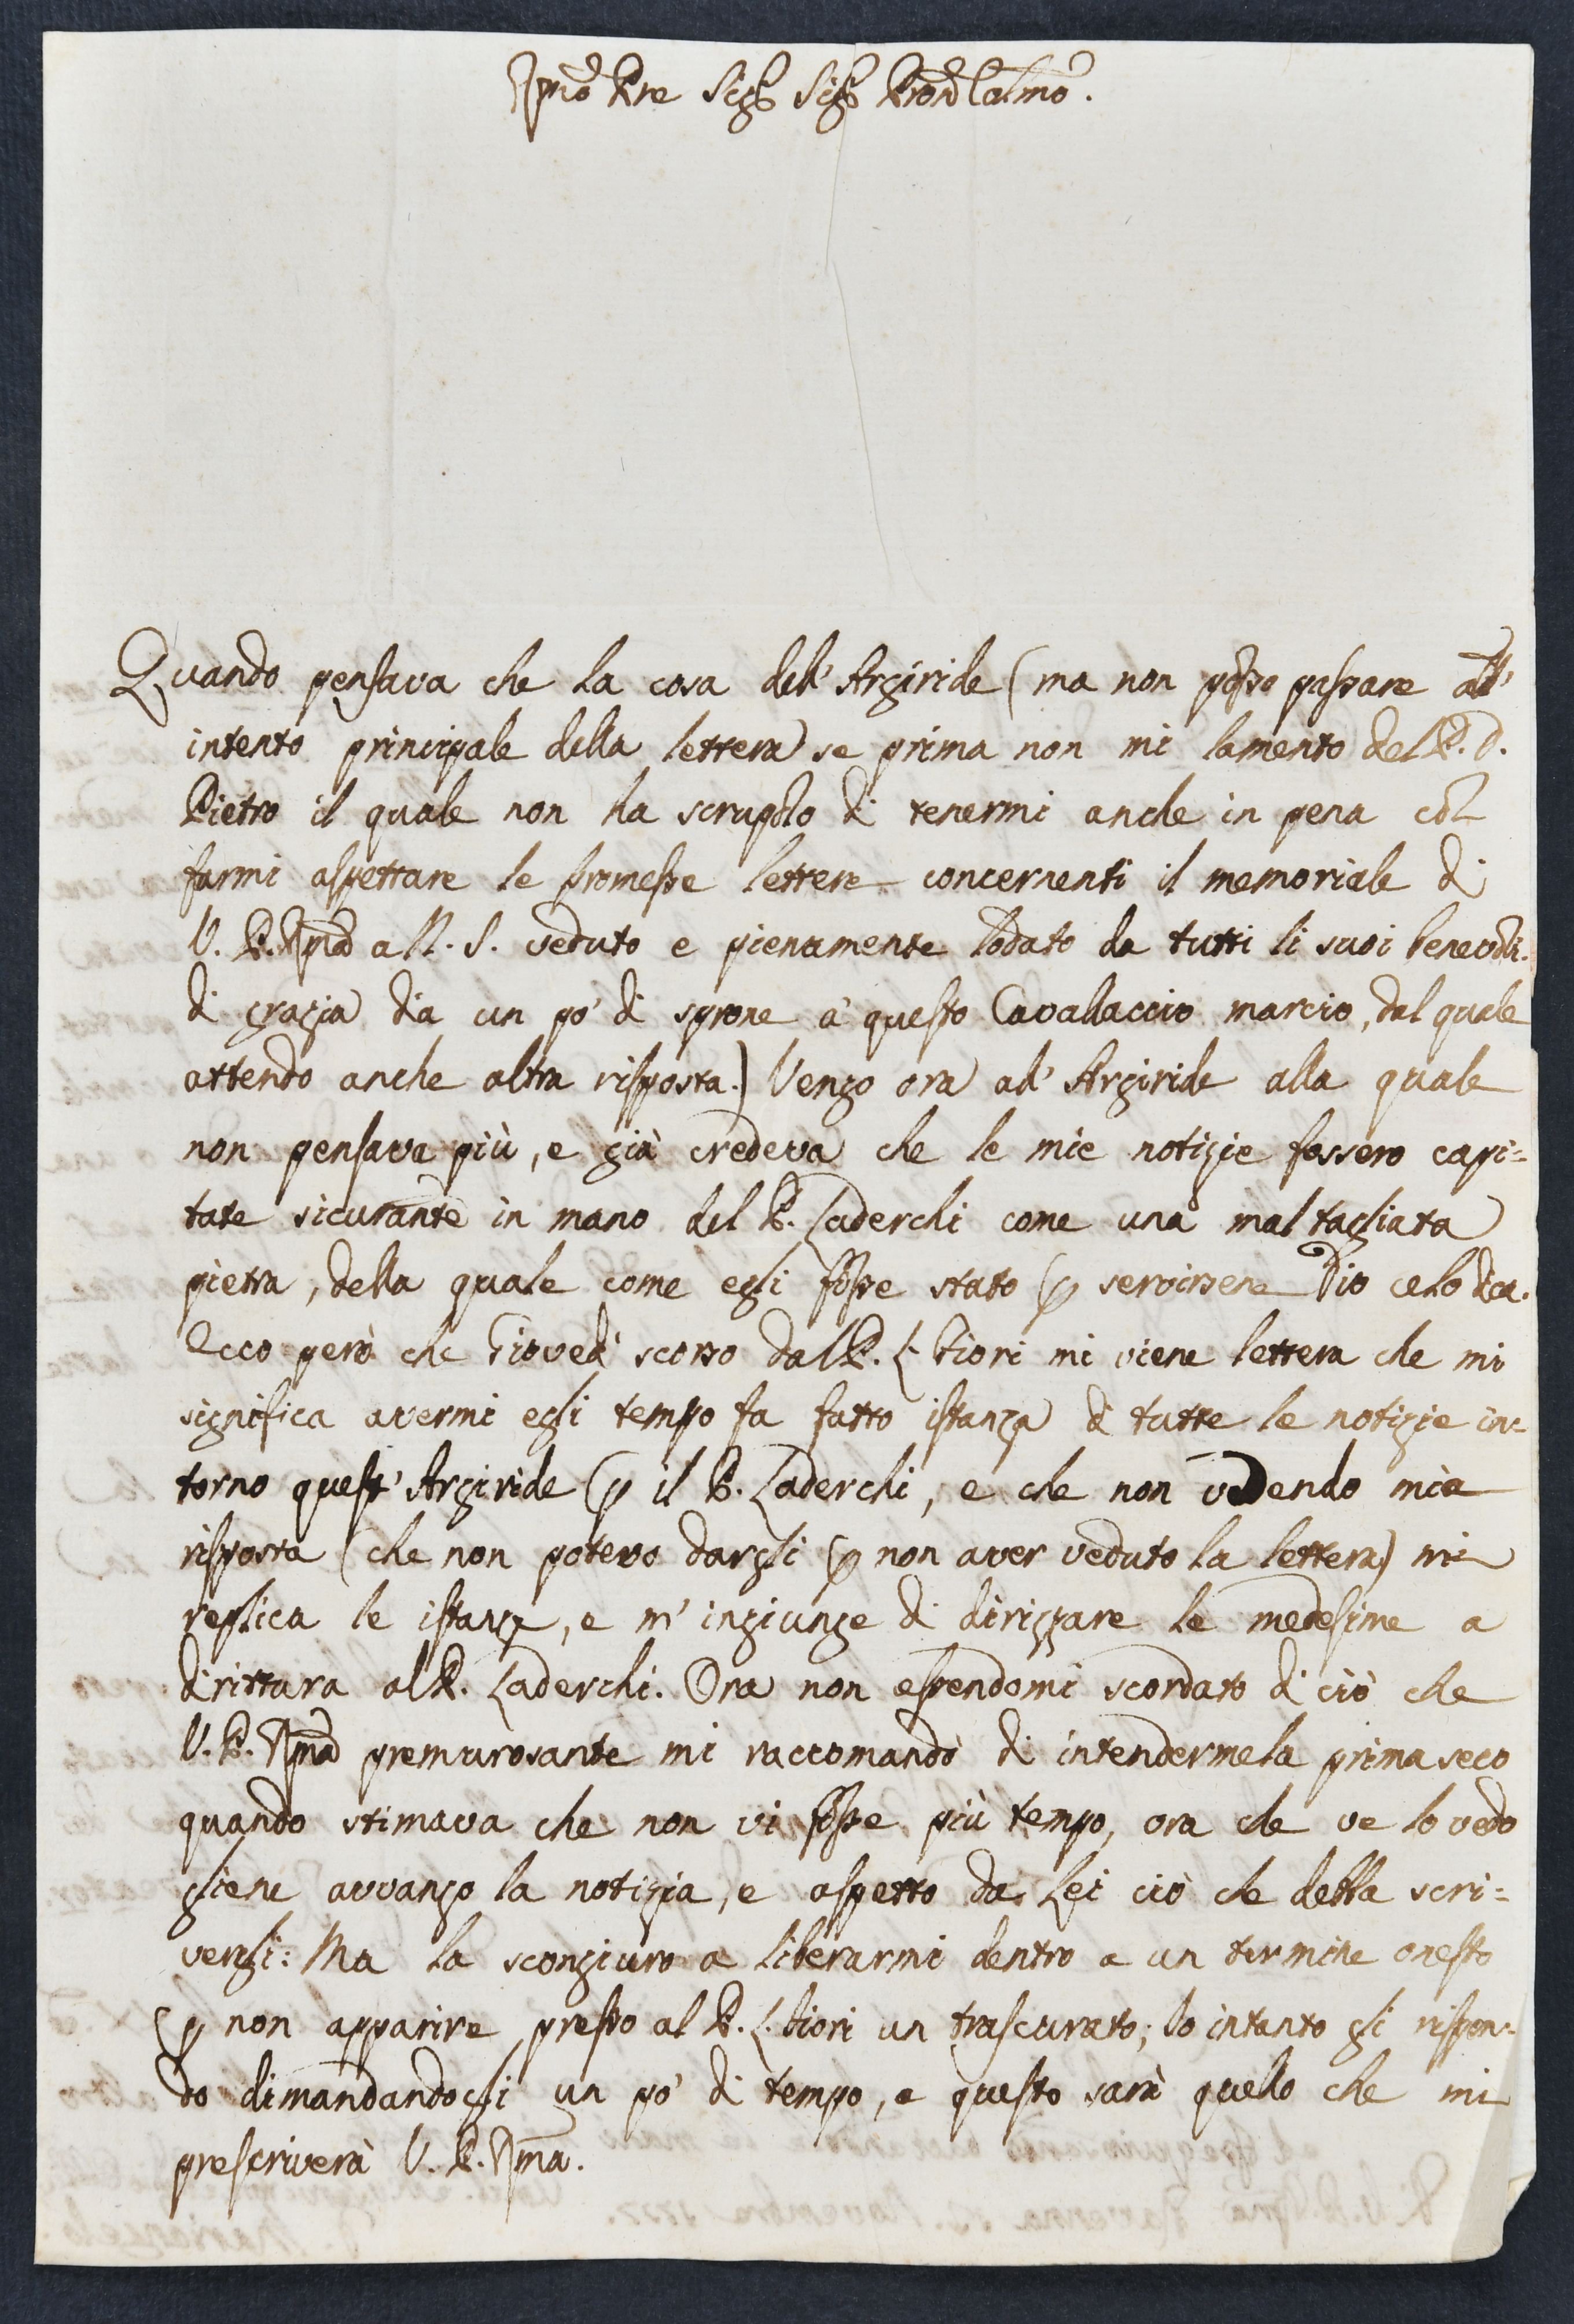 Rmo Pre Sigr Sigr Pron Colmo.
Quando pensava che la cosa dell' Argiride (ma non posso passare all'
intento principale della lettera se prima non mi lamento del P. D.
Pietro il quale non ha scrupolo di tenermi anche in pena col
farmi aspettare le promesse lettere concernenti il memoriale di
V. P. Rma a N. S. veduto e pienamente lodato da tutti li suoi
di grazia dia un po' di sprone a questo Cavallaccio marcio, dal quale
attendo anche altra risposta.) Vengo ora all' Argiride alla quale
non pensava più, e già credeva che le mie notizie fossero capi=
tate sicurante in mano del P. Laderchi come una mal tagliata
pietra, della quale come egli fosse stato p servirsene Dio celo dica.
Ecco però che Giovedì scorso dal P. L. Fiori mi viene lettera che mi
significa avermi egli tempo fa fatto istanza di tutte le notizie in=
torno quest' Argiride p il P. Laderchi, e che non vedendo mia
risposta (che non potevo dargli p non aver veduto la lettera) mi
replica le istanze, e m' ingiunge di dirizzare le medesime a
dirittura al P. Laderchi. Ora non essendomi scordato di ciò che
V. P. Rma premurosante mi raccomandò di intendermela prima seco
quando stimava che non vi fosse più tempo, ora che ve lo vedo
gliene avvanzo la notizia, e aspetto da Lei ciò che debba scri=
vergli: Ma la scongiuro a liberarmi dentro a un termine onesto
p non apparire presso al P. L. Fiori un trascurato; Io intanto gli rispon=
do dimandandogli un po' di tempo, e questo sarà quello che mi
prescriverà V. P. Rma.